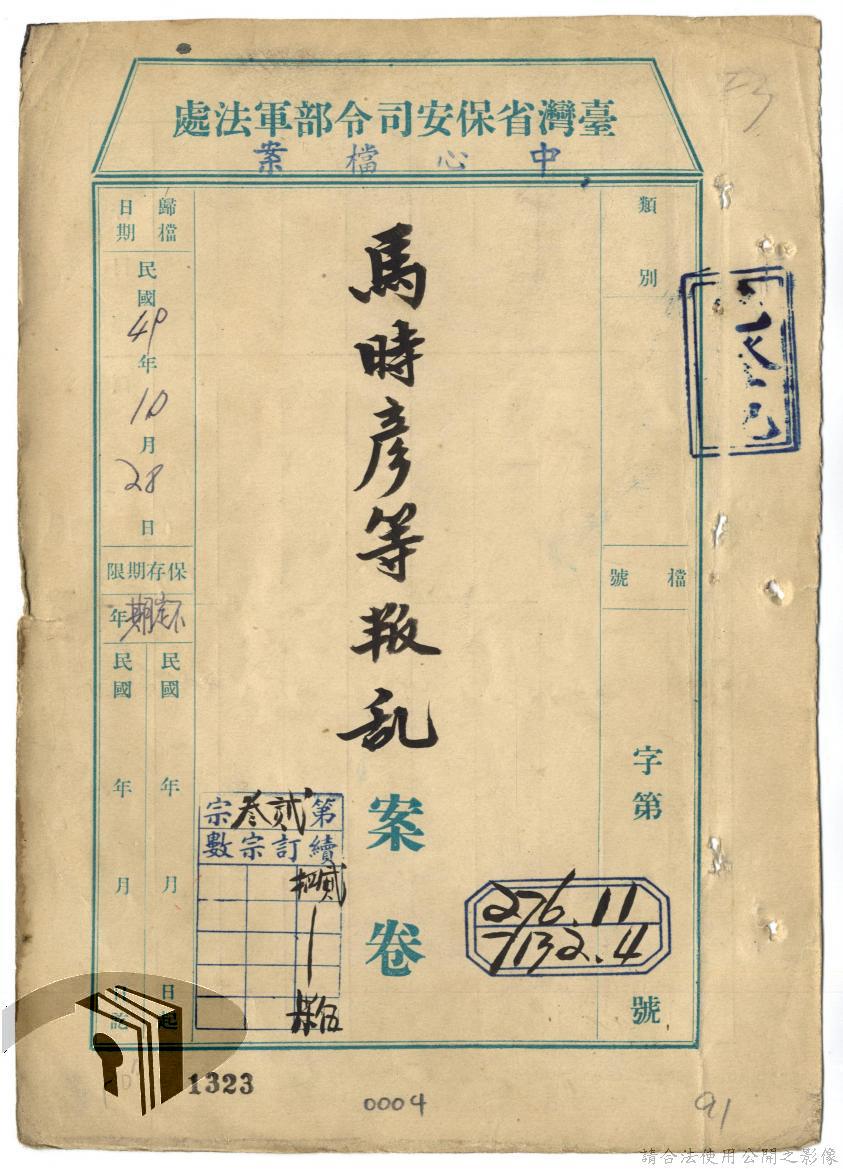 臺灣省保安司令部軍法處
中心檔案
類別
檔號
字第
號
276.11
7132.4
馬時彥等叛乱
案卷
第貳叁宗
續訂宗數
貳
伍
歸檔日期
民國
年
10
月
28
日
保存期限
年
民國 年 月 日起
民國 年 月 日訖
1323
0004
91
請合法使用公開之影像